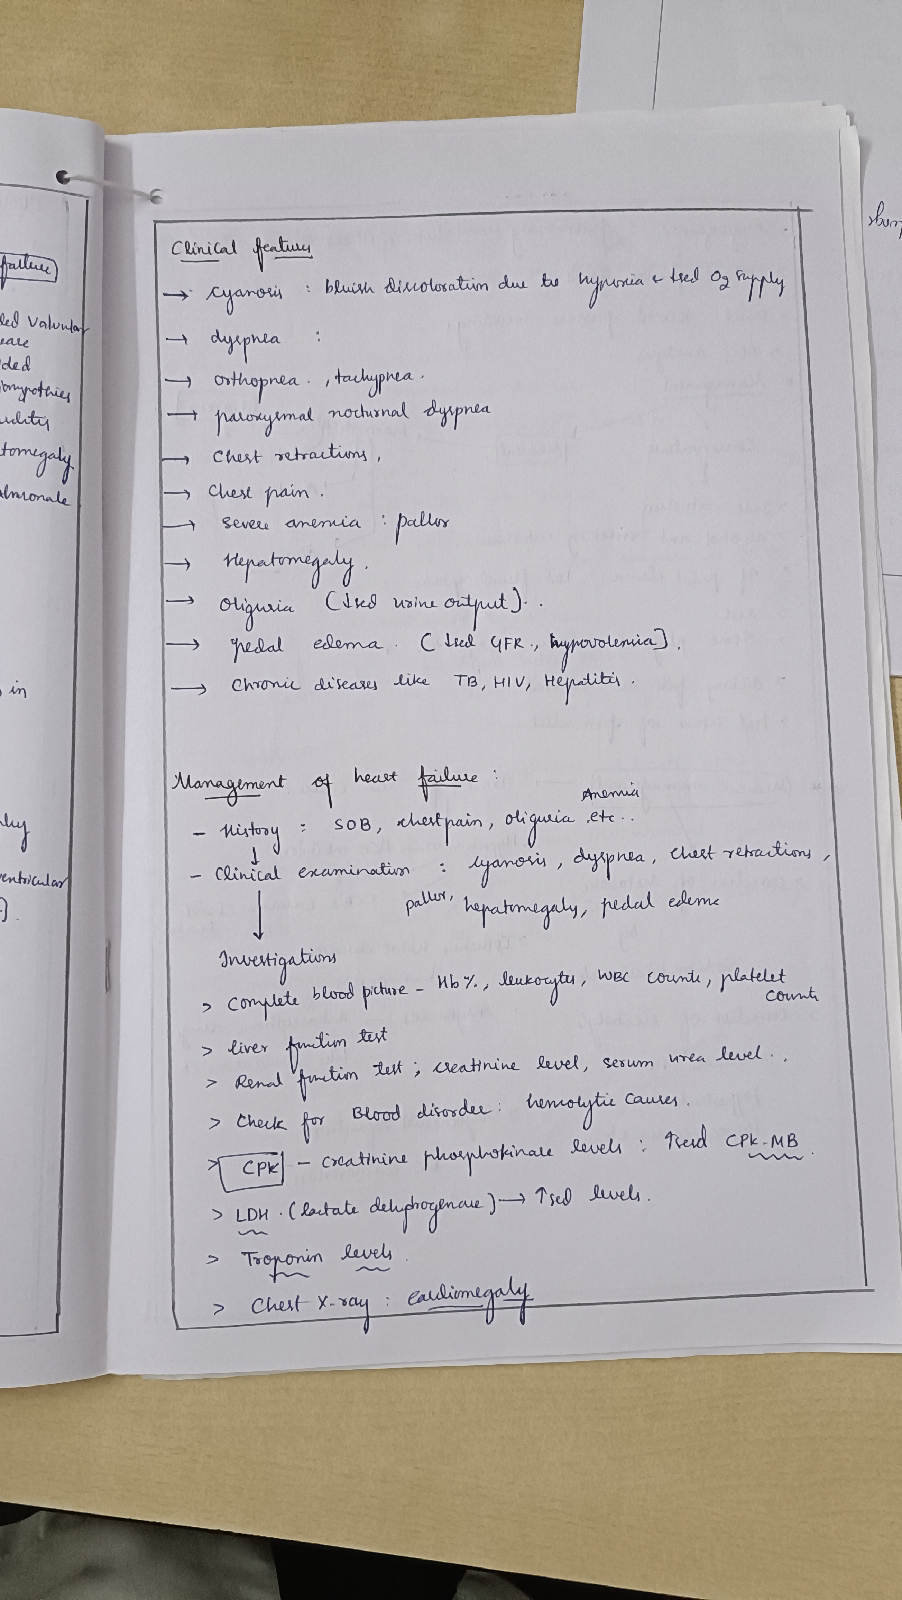 failure
valvular
in
ventricular
Clinical features
→ cyanosis : bluish discoloration due to hypoxia & ↓sed O2 supply
→ dyspnea :
→ orthopnea . , tachypnea .
→ paroxysmal nocturnal dyspnea
→ Chest retractions ,
→ Chest pain .
→ severe anemia : pallor
→ Hepatomegaly .
→ oliguria (↓sed urine output) . .
→ pedal edema . (↓sed GFR ., hypovolemia) .
→ Chronic diseases like TB, HIV, Hepatitis .
Management of heart failure :
Anemia
- History : SOB, chest pain, oliguria , etc . .
↓
- Clinical examination : cyanosis , dyspnea , chest retractions ,
pallor, hepatomegaly, pedal edema
↓
Investigations
> Complete blood picture - Hb %, leukocytes, WBC counts, platelet
counts
> liver function test
> Renal function test ; creatinine level, serum urea level . .
> Check for Blood disorder : hemolytic causes .
> CPK - creatinine phosphokinase levels : ↑sed CPK-MB .
> LDH . (lactate dehydrogenase) → ↑sed levels .
> Troponin levels .
> Chest X-ray : cardiomegaly